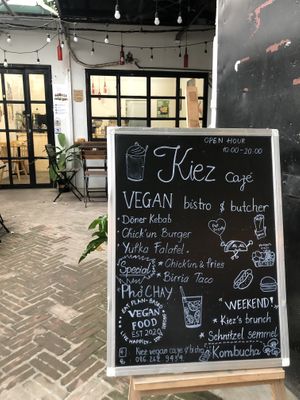 OPEN HOUR
10:00-20:00
Kiez café
VEGAN bistro & butcher
• Döner Kebab
• Chick'un Burger
• Yufka Falafel
Special
• Chick'un & fries
• Birria Taco
• Phở CHAY
EAT PLAN-BASED
VEGAN
FOOD
EST 2020
LIVE HAPPILY
"WEEKEND!"
• Kiez's brunch
• Schnitzel semmel
Kiez vegan café & bistro
Kombucha